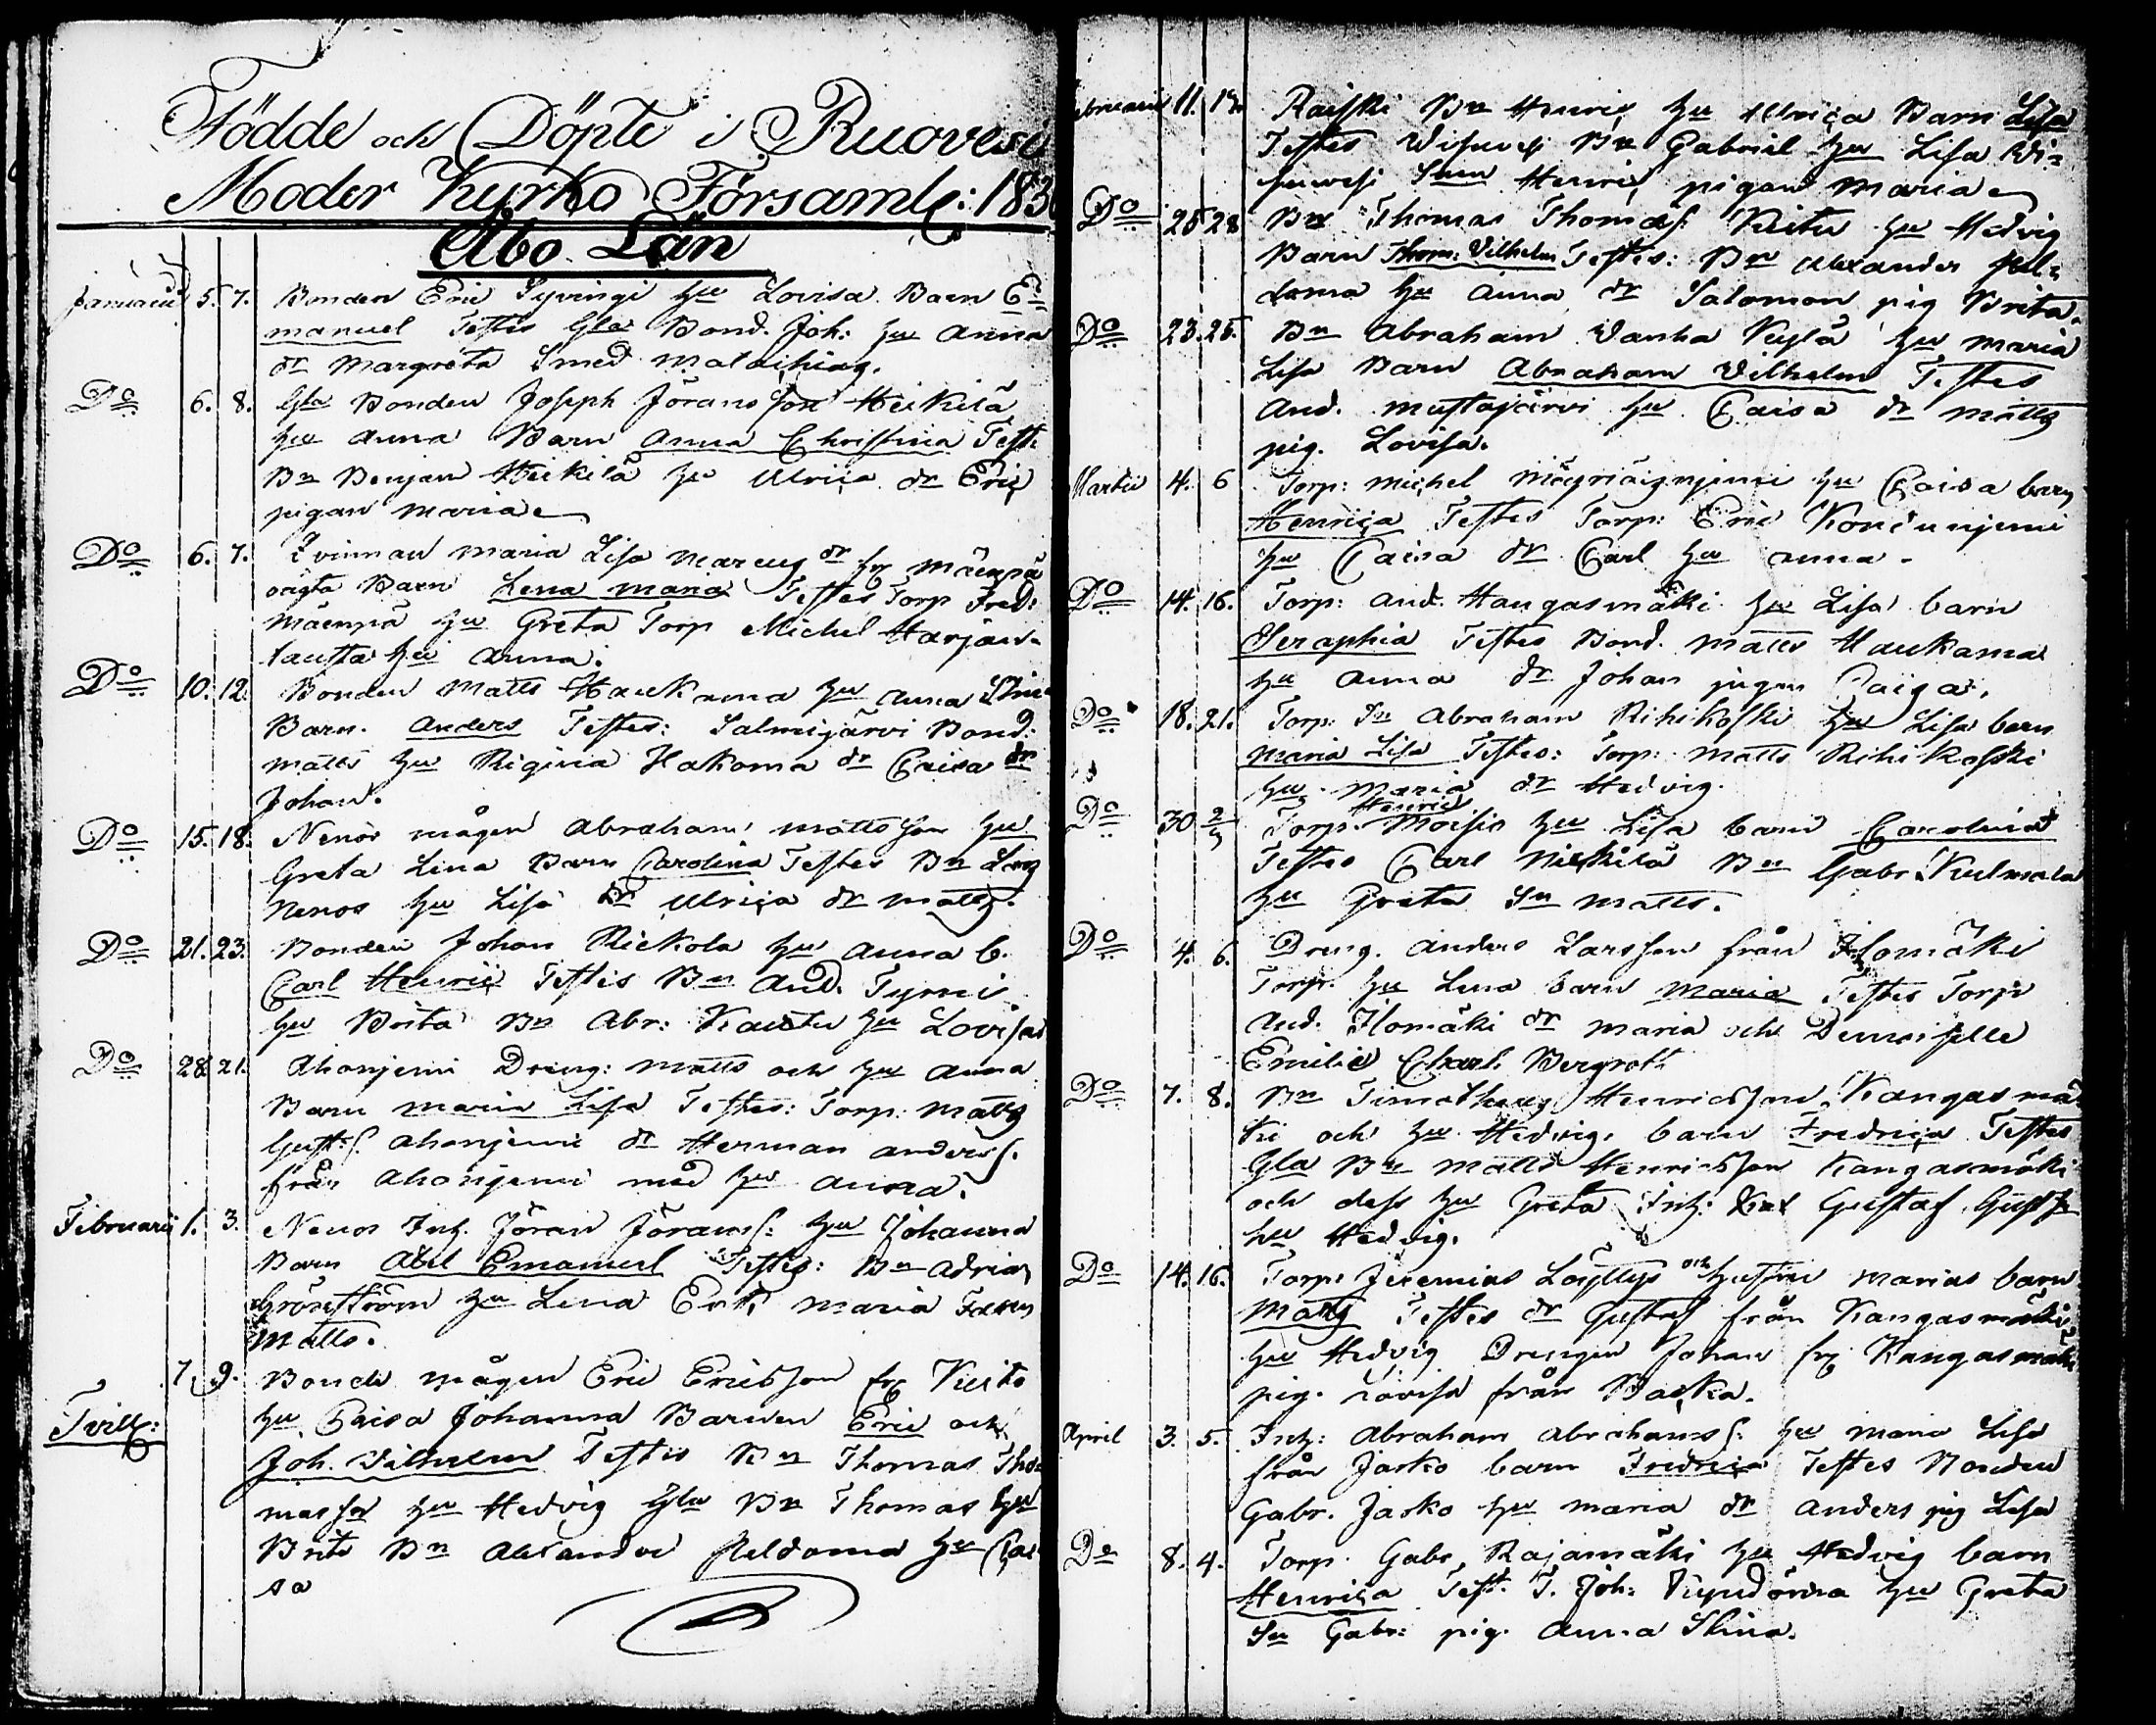 Födde och Döpte i Ruovesi
Moder Kyrko Församl: 183
Åbo Län
Januarii 5. 7. Bonden Eric Syvingi hu Lovisa Barn E=
manuel Testes Gla Bond. Joh: hu Anna
dr Margreta Smed
Do 6. 8. Gla Bonden Joseph Jöransson Heikilä
hu Anna Barn Anna Christina Test:
Bn Benjam Heikilä hu Ulrica dr Eric
pigan Maria
Do 6. 7. Qvinnan Maria Lisa Marcus dr fr Mäenpä
oägta Barn Lena Maria Testes Torp Fred:
Mäenpä hu Greta Torp Michel Harjan=
tausta hu Anna.
Do 10. 12. Bonden Matts Haukama hu Anna Stina
Barn. Anders Testes: Salmijärvi Bond:
Matts hu Regina Hakama dr Caisa dr
Johan.
Do 15. 18. Nenos mågen Abraham Mattsson hu
Greta Lena Barn Carolina Testes Bn Lars
Nenos hu Lisa dr Ulrica dr Matts.
Do 21. 23. Bonden Johan Rickola hu Anna b.
Carl Henric Testes Bn And. Tyrni
hu Brita Bn Abr: Kautu hu Lovisa
Do 28. 21. Ahonjemi Dreng: Matts och hu Anna
Barn Maria Lisa Testes: Torp: Matts
Gust:s. Ahonjemi dr Herman Anderss.
från Ahonjemi med hu Anna.
Februarii 1. 3. Nenos Inh. Jöran Jöranss: hu Johanna
Barn Abel Emanuel Testes: Bn Adrian
Grönström hu Lena Enk. Maria
Matts.
7. 9. Bonde mågen Eric Ericsson fr Kuito
Tvill: hu Caisa Johanna Barnen Eric och
Joh. Vilhelm Testes Bn Thomas Tho=
masson hu Hedvig Gla Bn Thomas hu
Brita Bn Alexander Peldoma hu Cai
sa
Februarii 11. 13. Raiski Bn Henric hu Ulrica Barn Lisa
Testes Visuvesi Bn Gabriel hu Lisa Vi=
suvesi Sn Henric pigan Maria
Do 25 28 Bn Thomas Thomass. Kuitu hu Hedvig
Barn Thom: Vilhelm Testes: Bn Alexander Pel=
doma hu Anna dr Salomon pig Brita.
Do 23. 25. Bn Abraham Vanha Kylä hu Maria
Lisa Barn Abraham Vilhelm Testes
And. Mustajärvi hu Caisa dr Matts
pig. Lovisa.
Martii 4. 6 Torp: Michel hu Caisa barn
Henrica Testes Torp: Eric
hu Caisa dr Carl hu Anna.
Do 14. 16. Torp: And. Hangasmäki hu Lisa barn
Seraphia Testes Bond. Matts Haukama
hu Anna dr Johan pigan Caisa.
Do 18. 21. Torp: Sn Abraham Rihikoski hu Lisa barn
Maria Lisa Testes: Torp: Matts Rihikoski
hu Maria dr Hedvig.
Do 30 2/3 Torp. Henric Moisio hu Lisa barn Carolina
Testes Carl Nickilä Bn Gabr. Kulmala
hu Greta Sn Matts.
Do 4. 6. Dreng. Anders Larsson från Ilomäki
Torp. hu Lena barn Maria Testes Torp:
And. Ilomäki dr Maria och Demoiselle
Emilie Charl. Bergroth
Do 7. 8. Bn Timotheus Henricsson Kangasmä
ki och hu Hedvig. barn Fredrica Testes
Gla Bn Matts Henricsson Kangasmäki
och dess hu Greta Inh: Gustaf Gust
hu Hedvig.
Do 14. 16. Torp: Jeremias Löyttys och hustru Marias barn
Matts Testes dr Gustaf från Kangasmäki
hu Hedvig Drengen Johan fr Kangasmäki
pig. Lovisa från Backa.
April 3. 5. Inh: Abraham Abrahamss: hu Maria Lisa
från Jasko barn Fredrica Testes Bonden
Gabr. Jasko hu Maria dr Anders pig Lisa
Do 8. 4. Torp. Gabr. Rajamäki hu Hedvig barn
Henrica Test. T. Joh: hu Greta
Sn Gabr: pig. Anna Stina.